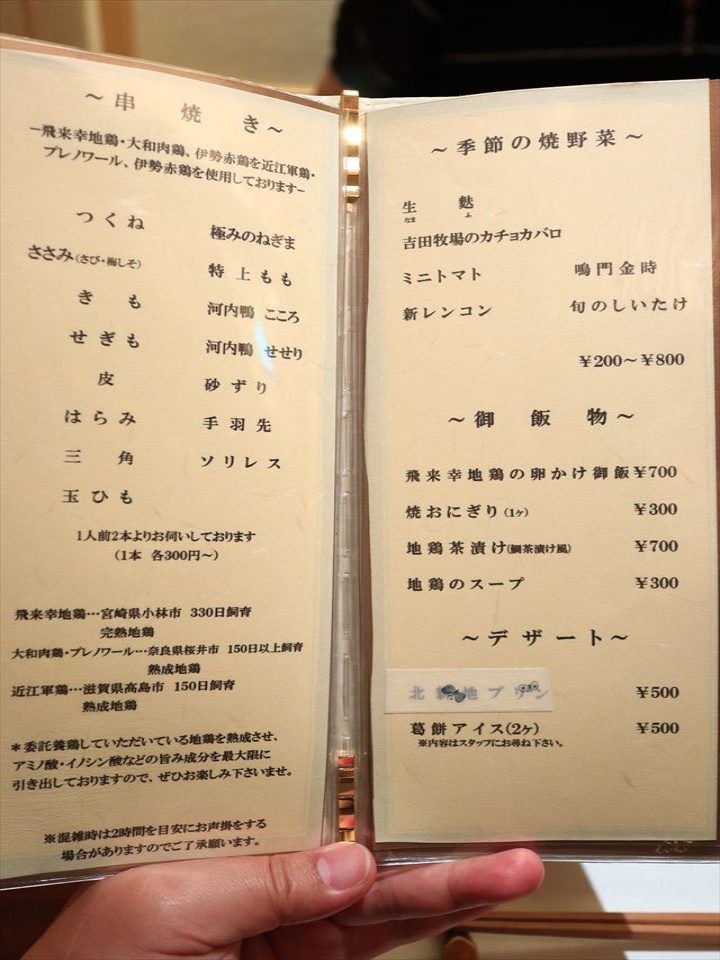 ～串焼き～
−飛来幸地鶏・大和肉鶏、伊勢赤鶏を近江軍鶏・
プレノワール、伊勢赤鶏を使用しております−
つくね
ささみ(さび・梅しそ)
きも
せぎも
皮
はらみ
三角
玉ひも
極みのねぎま
特上もも
河内鴨 こころ
河内鴨 せせり
砂ずり
手羽先
ソリレス
1人前2本よりお伺いしております
(1本 各300円～)
飛来幸地鶏…宮崎県小林市 330日飼育
完熟地鶏
大和肉鶏・プレノワール…奈良県桜井市 150日以上飼育
熟成地鶏
近江軍鶏…滋賀県高島市 150日飼育
熟成地鶏
＊委託養鶏していただいている地鶏を熟成させ、
アミノ酸・イノシン酸などの旨み成分を最大限に
引き出しておりますので、ぜひお楽しみ下さいませ。
※混雑時は2時間を目安にお声掛をする
場合がありますのでご了承願います。
～季節の焼野菜～
生麩
なま ふ
吉田牧場のカチョカバロ
ミニトマト 鳴門金時
新レンコン 旬のしいたけ
¥200～¥800
～御飯物～
飛来幸地鶏の卵かけ御飯 ¥700
焼おにぎり(1ヶ) ¥300
地鶏茶漬け(鯛茶漬け風) ¥700
地鶏のスープ ¥300
～デザート～
北新地プリン ¥500
葛餅アイス(2ヶ) ¥500
※内容はスタッフにお尋ね下さい。